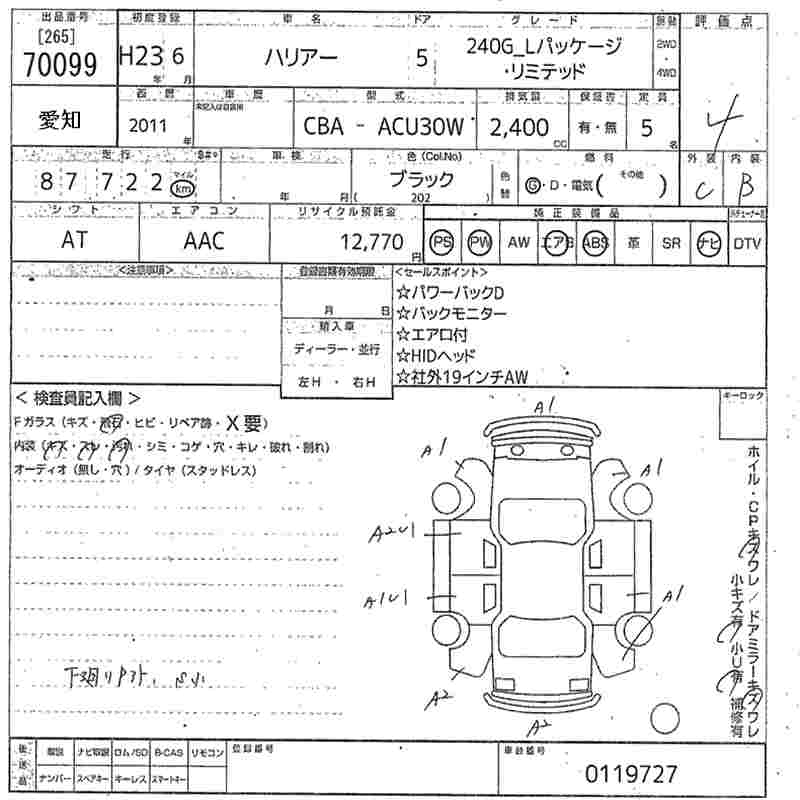 出品番号 初度登録 車名 ドア グレード 評価点
[265]
70099 H23 6 ハリアー 5 240G_Lパッケージ
・リミテッド
2WD
・
4WD
年 月
4
愛知
西暦 車歴 型式 排気量 保証書 定員
未記入は自家用
2011 年 CBA - ACU30W 2,400 cc 有・無 5 名
走行 車検 色(Col.No) 燃料 外装 内装
87722 マイル km 年 月 ブラック ( 202 ) 色替 G・D・電気( その他 ) C B
シフト エアコン リサイクル預託金 純正装備品
AT AAC 12,770 円 PS PW AW エアB ABS 革 SR ナビ DTV
<注意事項> 登録書類有効期限 <セールスポイント>
月 日
☆パワーバックD
☆バックモニター
☆エアロ付
☆HIDヘッド
☆社外19インチAW
輸入車
ディーラー・並行
左H ・ 右H
< 検査員記入欄 >
キーロック
Fガラス (キズ・飛石・ヒビ・リペア跡・X要)
内装 (キズ・スレ・汚れ・シミ・コゲ・穴・キレ・破れ・割れ)
オーディオ (無し・穴) / タイヤ (スタッドレス)
A1
A1
A1
A2U1
A1U1
A1
A2
A2
ホイル・CPキズワレ / ドアミラーキズワレ
小キズ有 小U有 補修有
後送品
取説 ナビ取説 ロム/SD B-CAS リモコン
ナンバー スペアキー キーレス スマートキー
登録番号
車台番号
0119727